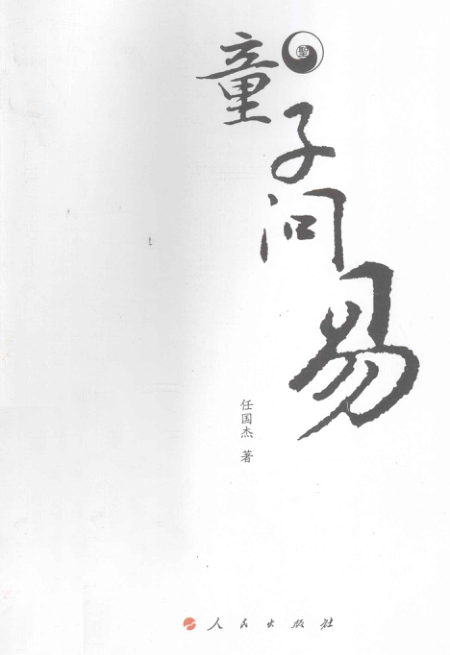 童子问易
任国杰 著
人民出版社